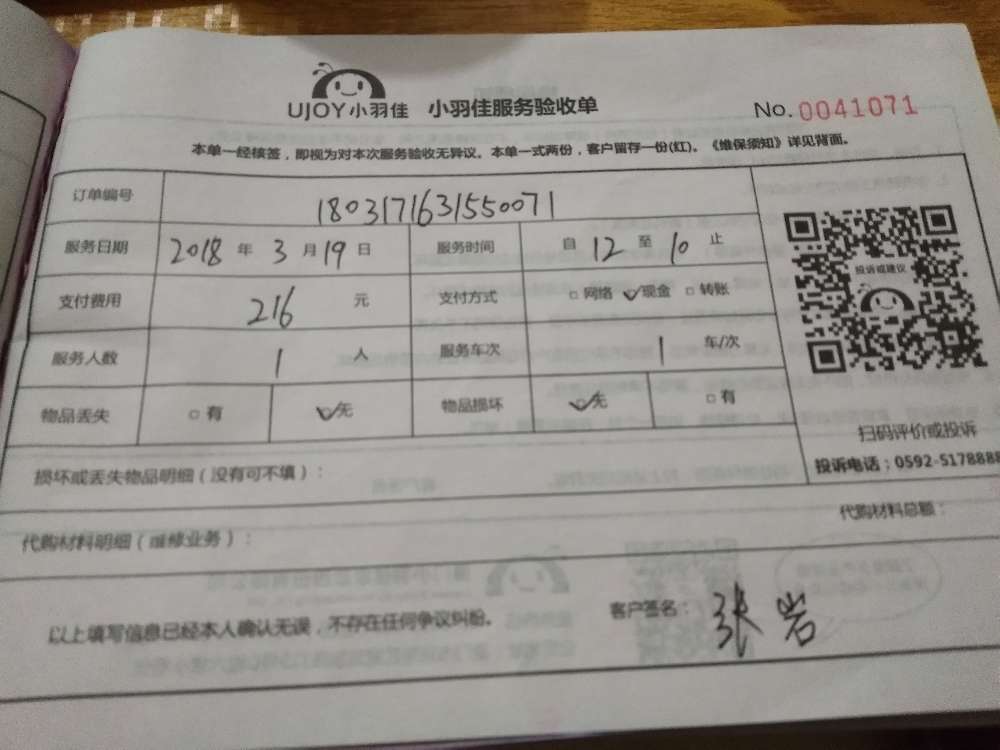 UJOY小羽佳 小羽佳服务验收单 No. 0041071
本单一经核签，即视为对本次服务验收无异议。本单一式两份，客户留存一份(红)。《维保须知》详见背面。
订单编号 1803171631550071
服务日期 2018 年 3 月 19 日 服务时间 自 12 至 10 止
支付费用 216 元 支付方式 □网络 ☑现金 □转账
投诉或建议
服务人数 1 人 服务车次 1 车/次
物品丢失 □有 ☑无 物品损坏 ☑无 □有
扫码评价或投诉
投诉电话：0592-5178888
损坏或丢失物品明细（没有可不填）：
代购材料明细（维修业务）： 代购材料总额：
以上填写信息已经本人确认无误，不存在任何争议纠纷。 客户签名：张岩